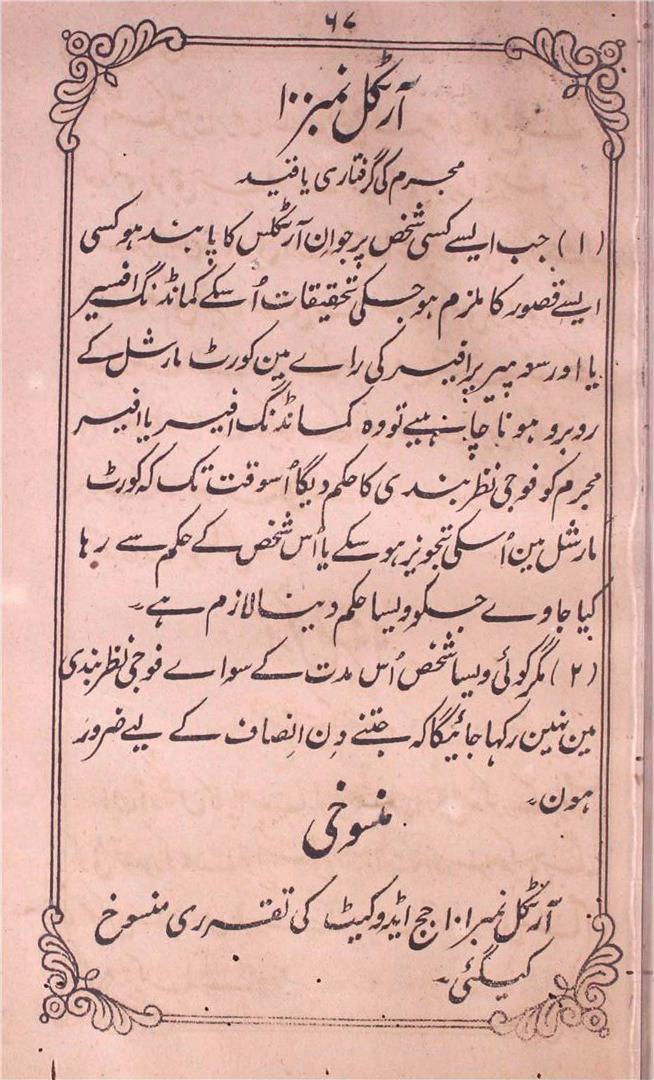 ۶۷
آرٹکل نمبر ۱۰۰
مجرم کی گرفتاری یا قید
(۱) جب ایسے کسی شخص پر جو اِن آرٹکلس کا پابند ہو کسی
ایسے قصور کا ملزم ہو جسکی تحقیقات اُسکے کمانڈنگ افیسر
یا اور سو پیریر افیسر کی راے مین کورٹ مارشل کے
روبرو ہونا چاہیے تو وہ کمانڈنگ افیسر یا افیسر
مجرم کو فوجی نظر بندی کا حکم دیگا اُسوقت تک کہ کورٹ
مارشل مین اُسکی تجویز ہوسکے یا اُس شخص کے حکم سے رہا
کیا جاوے جسکو ویسا حکم دینا لازم ہے۔
(۲) مگر کوئی ویسا شخص اُس مدت کے سواے فوجی نظر بندی
مین نہین رکہا جائیگا کہ جتنے دِن اِنصاف کے لیے ضرور
ہون۔
منسوخی
آرٹکل نمبر ۱۰۱ جج ایڈوکیٹ کی تقرری منسوخ
کیگئی۔